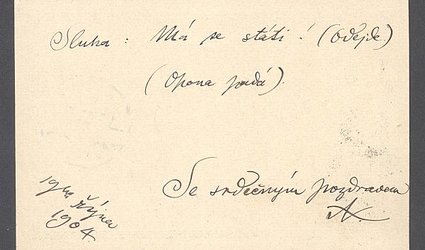 Sluha: Má se státi! (Odejde)
(Opona padá).
Se srdečným pozdravem
19 Října
1904